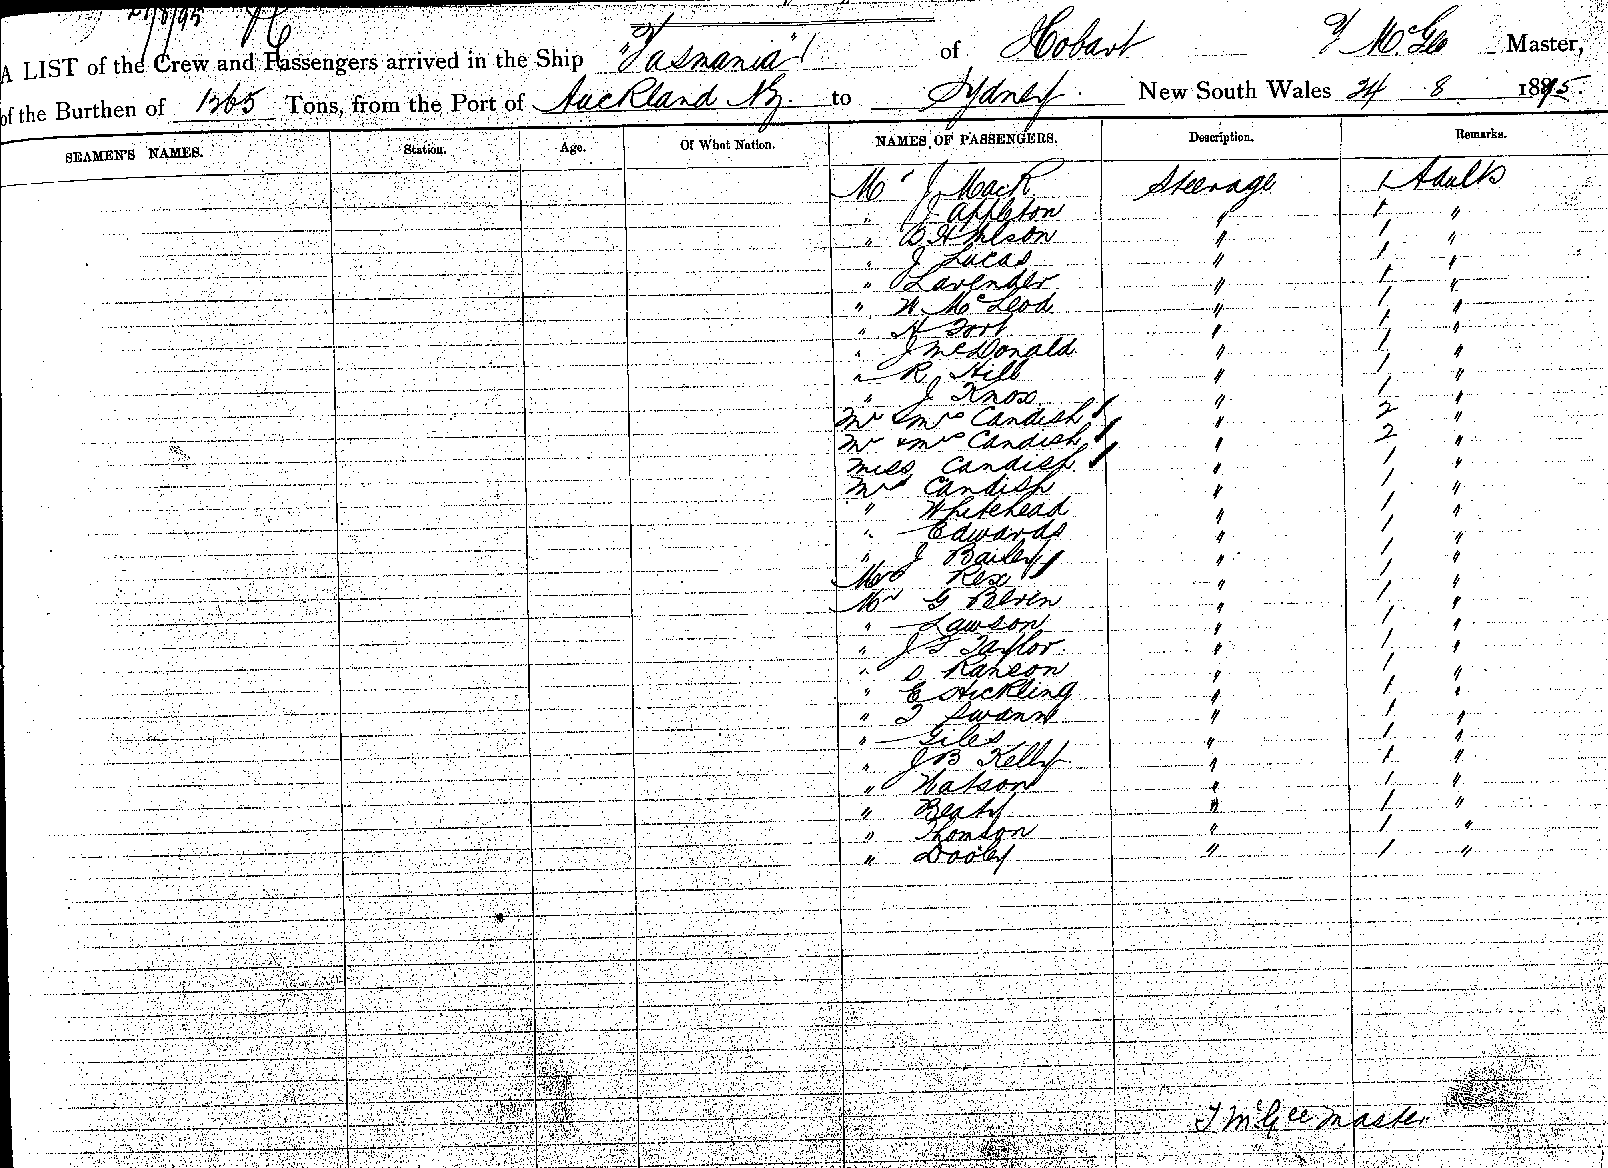 21/8/95
A LIST of the Crew and Passengers arrived in the Ship "Tasmania" of Hobart T McGee Master,
of the Burthen of 1265 Tons, from the Port of Auckland NZ. to Sydney. New South Wales 24 8 1895.
SEAMEN'S NAMES. Station. Age. Of What Nation. NAMES OF PASSENGERS. Description. Remarks.
Mr J Mack Steerage 1 Adults
" J Appleton " 1 "
" " 1 "
" J Lucas " 1 "
" Lavender " 1 "
" W McLeod " 1 "
" H " 1 "
" J McDonald " 1 "
" R Hill " 1 "
" J Knox " 1 "
Mr & Mrs Candish " 2 "
Mr & Mrs Candish " 2 "
Miss Candish " 1 "
Mrs Candish " 1 "
" Whitehead " 1 "
" Edwards " 1 "
" J Bailey " 1 "
Mrs Rex " 1 "
Mr G " 1 "
" Lawson " 1 "
" J T Taylor " 1 "
" Ranson " 1 "
" E Hickling " 1 "
" T Swann " 1 "
" Giles " 1 "
" J B Kelly " 1 "
" Watson " 1 "
" Beaty " 1 "
" Thomson " 1 "
" Dooley " 1 "
T McGee Master